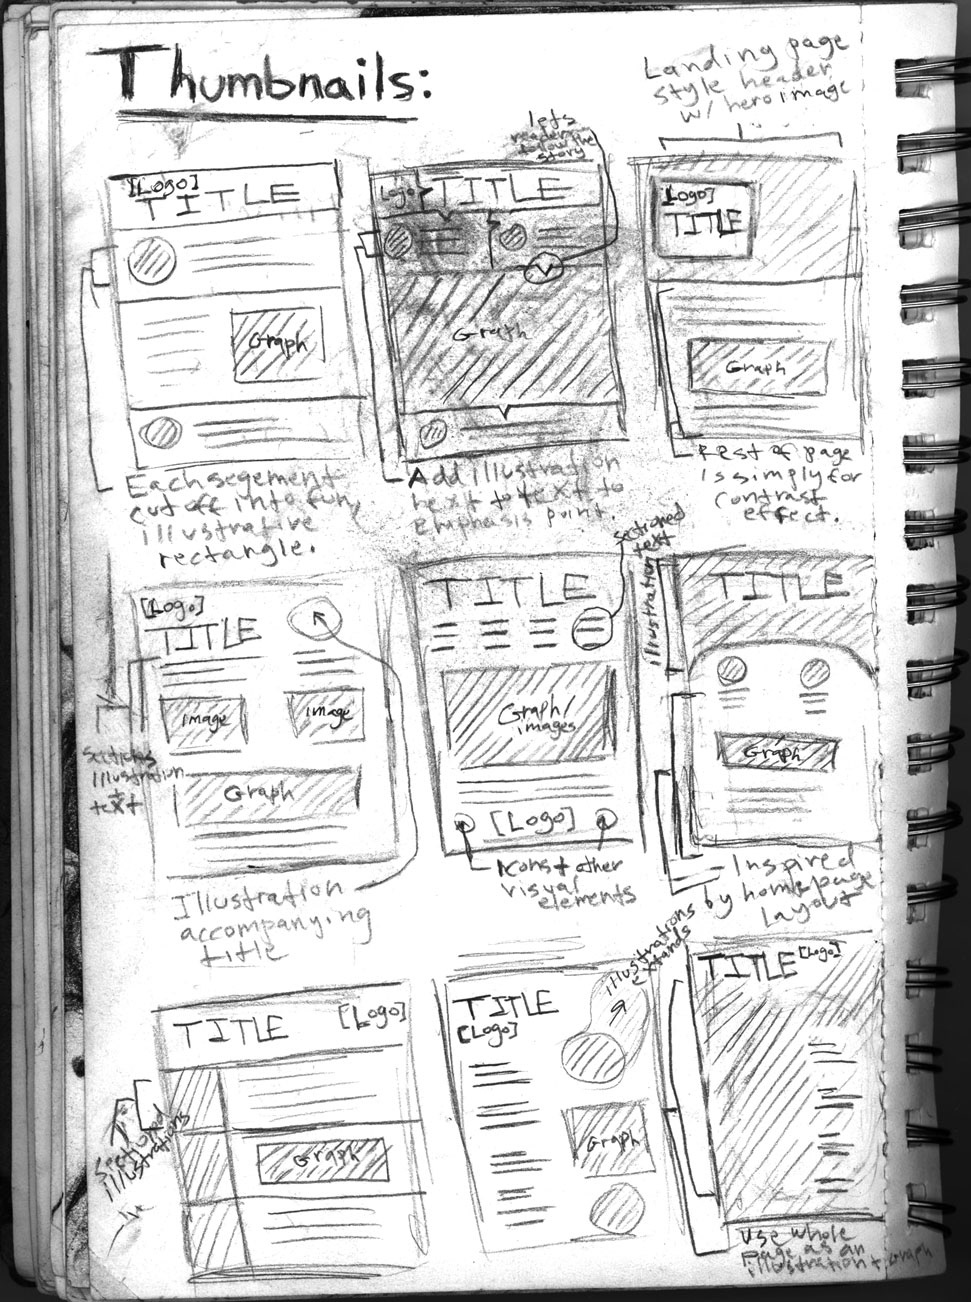 Thumbnails:
Landing page
style header
w/ hero image
lets
reader
follow the
story
[Logo]
TITLE
Graph
Each segement
cut off into fun,
illustrative
rectangle.
Logo
TITLE
Graph
Add illustration
next to text to
Emphasis point.
[Logo]
TITLE
Graph
Rest of page
is simply for
contrast
effect.
[Logo]
TITLE
image
image
Graph
Sections
illustration
+
text
Illustration
accompanying
title
sectioned
text
TITLE
Graph/
images
[Logo]
Icons + other
visual
elements
illustration
TITLE
Graph
Inspired
by homepage
layout
TITLE
[Logo]
Graph
Sectioned
illustrations
TITLE
[Logo]
illustrations
extands
Graph
TITLE [Logo]
use whole
page as an
illustration + graph